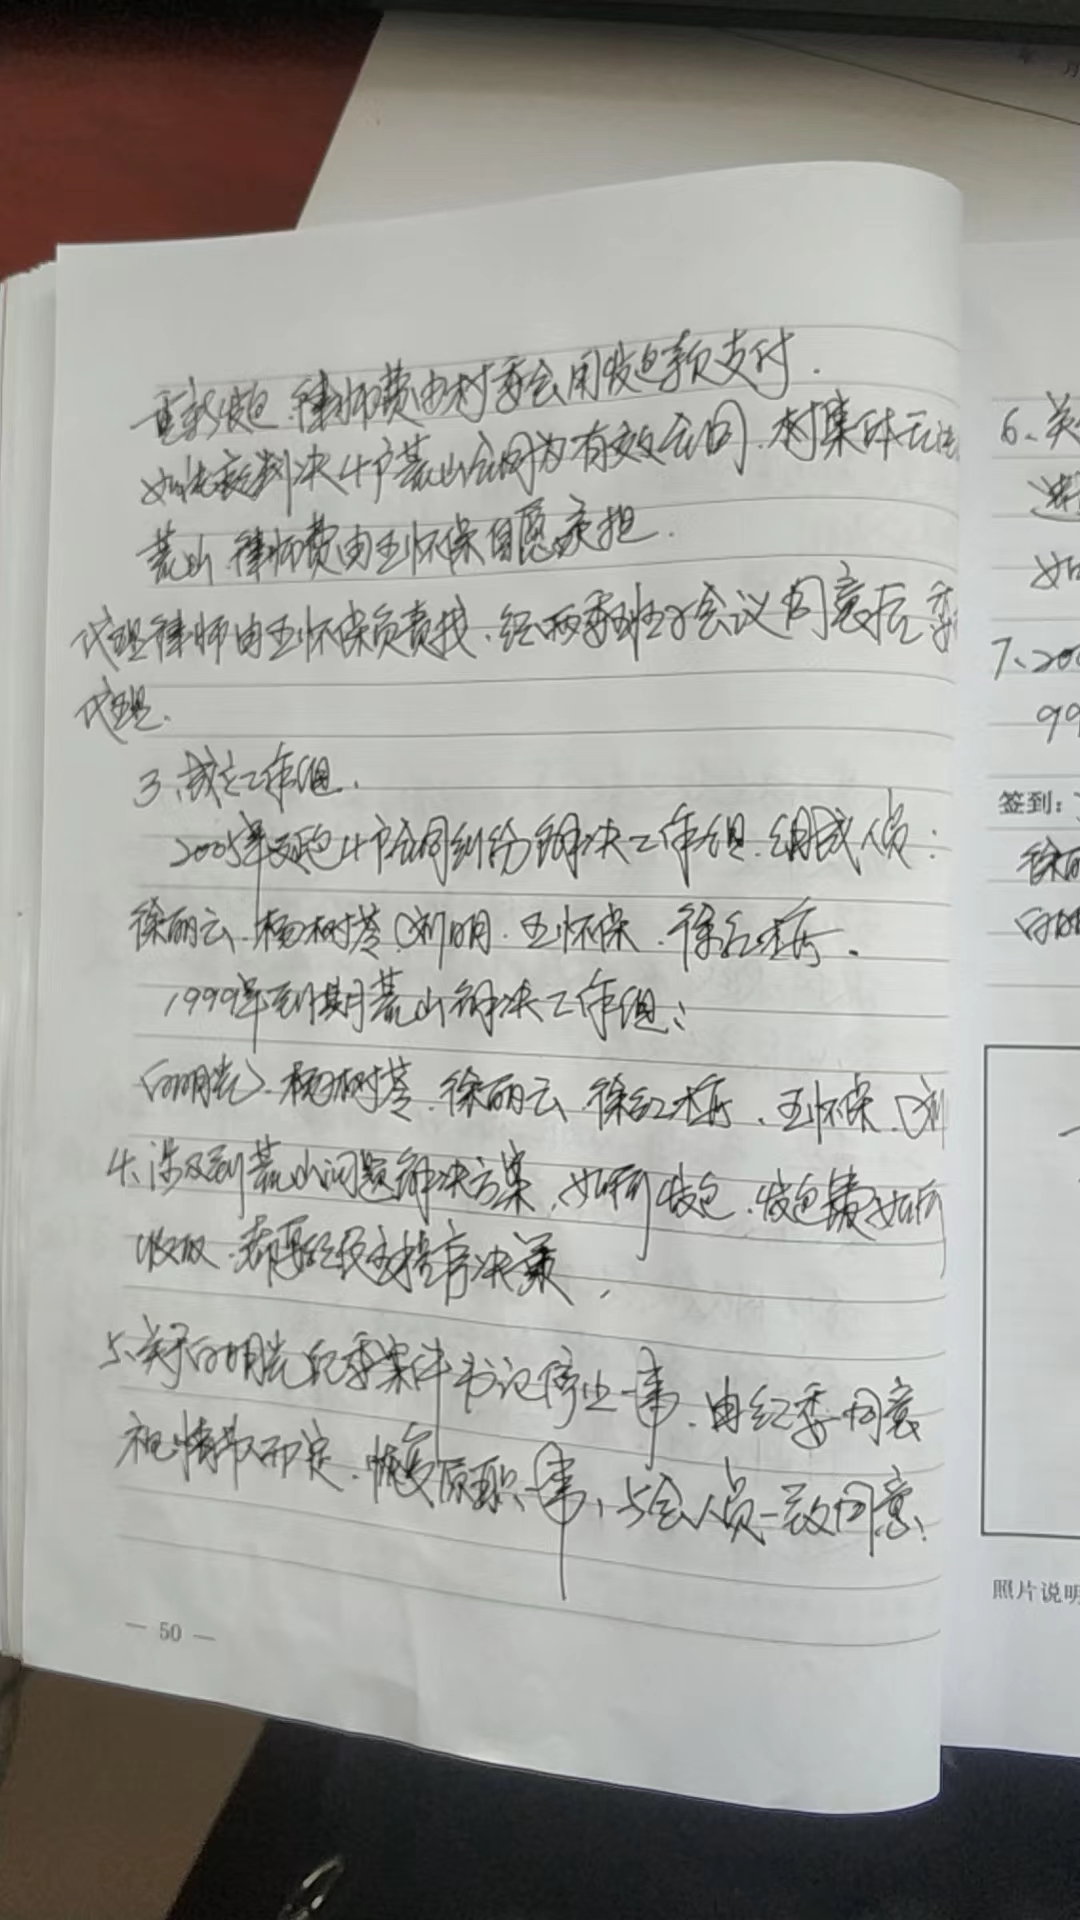 重新发包,律师费由村委会用发包款支付.
如法院判决4户荒山合同为有效合同,村集体无法
荒山,律师费由王怀保自愿承担.
代理律师由王怀保负责找,经两委班子会议同意后,委
代理.
3、成立工作组.
2005年发包4户合同纠纷解决工作组,组成人员:
徐丽云、杨树苓、刘明、王怀保、徐红
1999年到期荒山解决工作组:
白明光、杨树苓、徐丽云、徐红、王怀保、刘
4、涉及到荒山问题解决方案,如何发包,发包费如何
收取,都要经民主程序决策,
5、关于白明光纪委案件书记停止一事,由纪委同意
视情节而定,恢复原职一事,与会人员一致同意.
— 50 —
年 月
6、关
选
如
7、200
99
签到:
徐丽
白明
照片说明